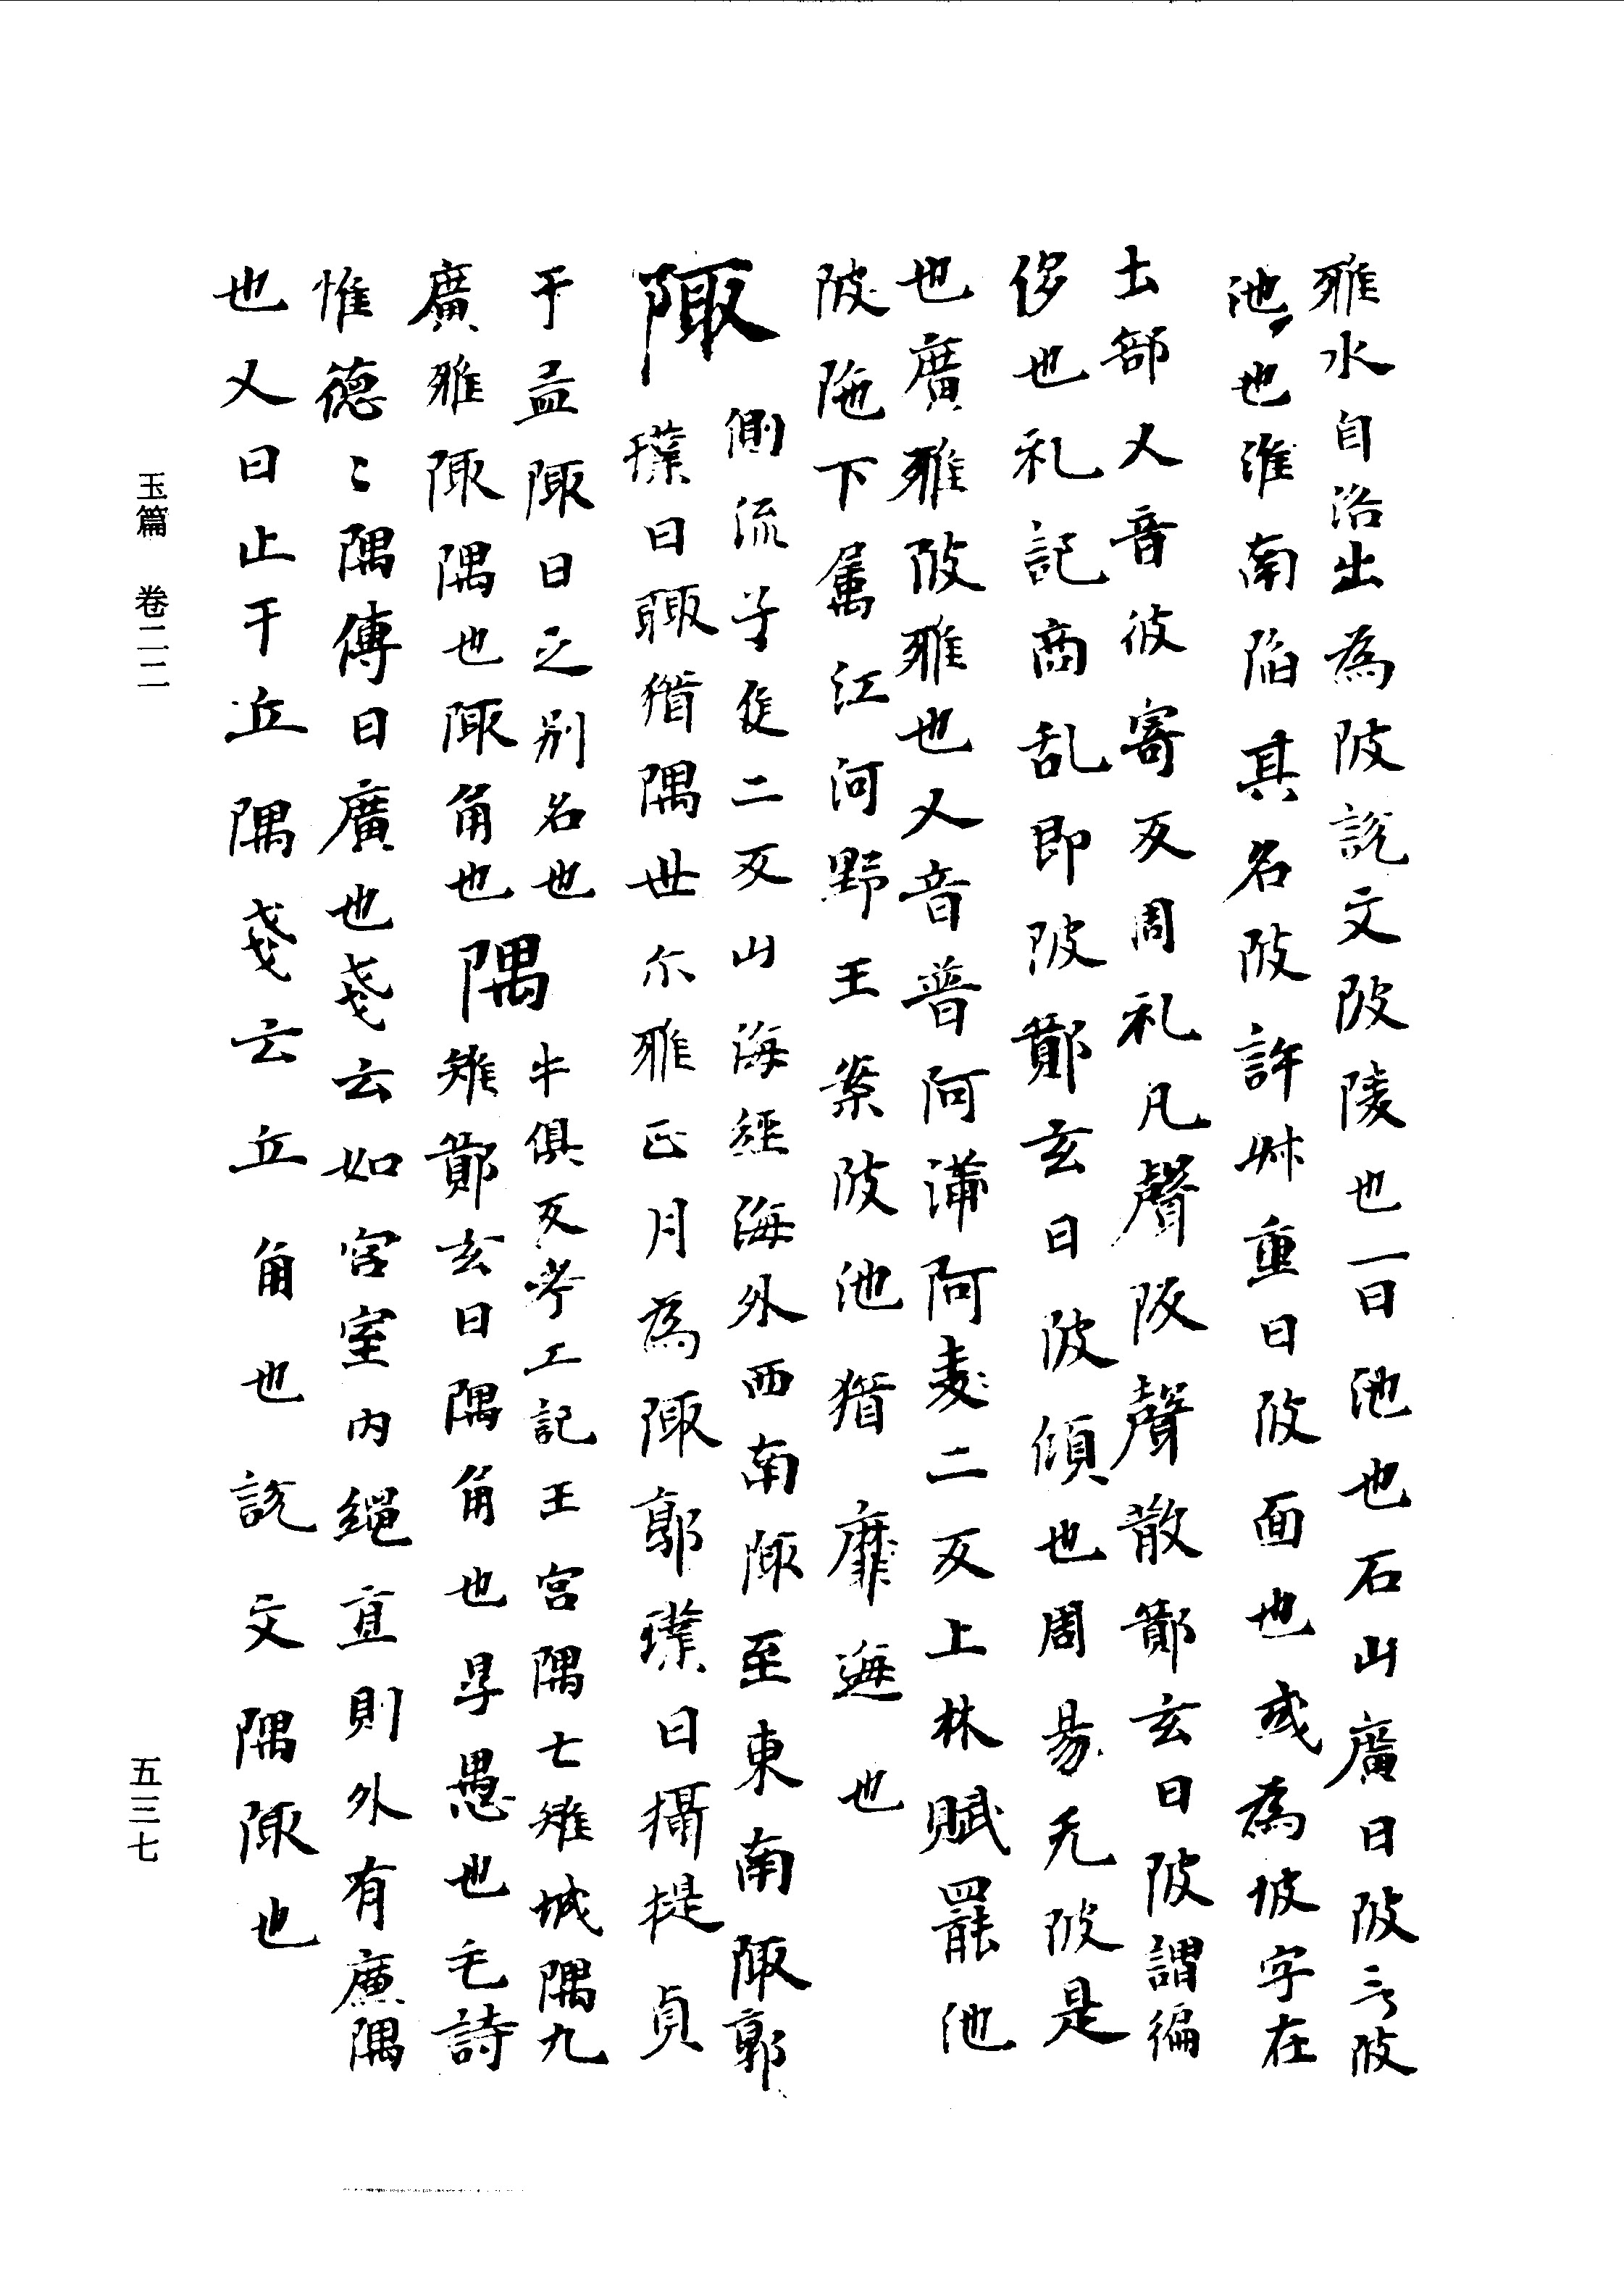 雅水自洛出為陂說文陂陵也一曰池也石山廣曰陂三陂
池〻也淮南陷其名陂許叔重曰陂面也或為坡字在
土部又音彼寄反周礼凡聲陂聲散鄭玄曰陂謂偏
侈也礼記商乱即陂鄭玄曰陂傾也周易无陂是
也廣雅陂雅也又音普阿蒲阿麦二反上林賦罷池
陂陁下属江河野王案陂池猶靡迤也
陬側流子隻二反山海經海外西南陬至東南陬郭
璞曰陬猶隅也尓雅正月為陬郭璞曰攝提貞
于孟陬日之别名也隅牛俱反考工記王宮隅七雉城隅九
廣雅陬隅也陬角也雉鄭玄曰隅角也㝵愚也毛詩
惟德〻隅傳曰廣也戔云如宮室内繩直則外有廉隅
也又曰止于丘隅戔云丘角也說文隅陬也
玉篇 卷二二
五三七